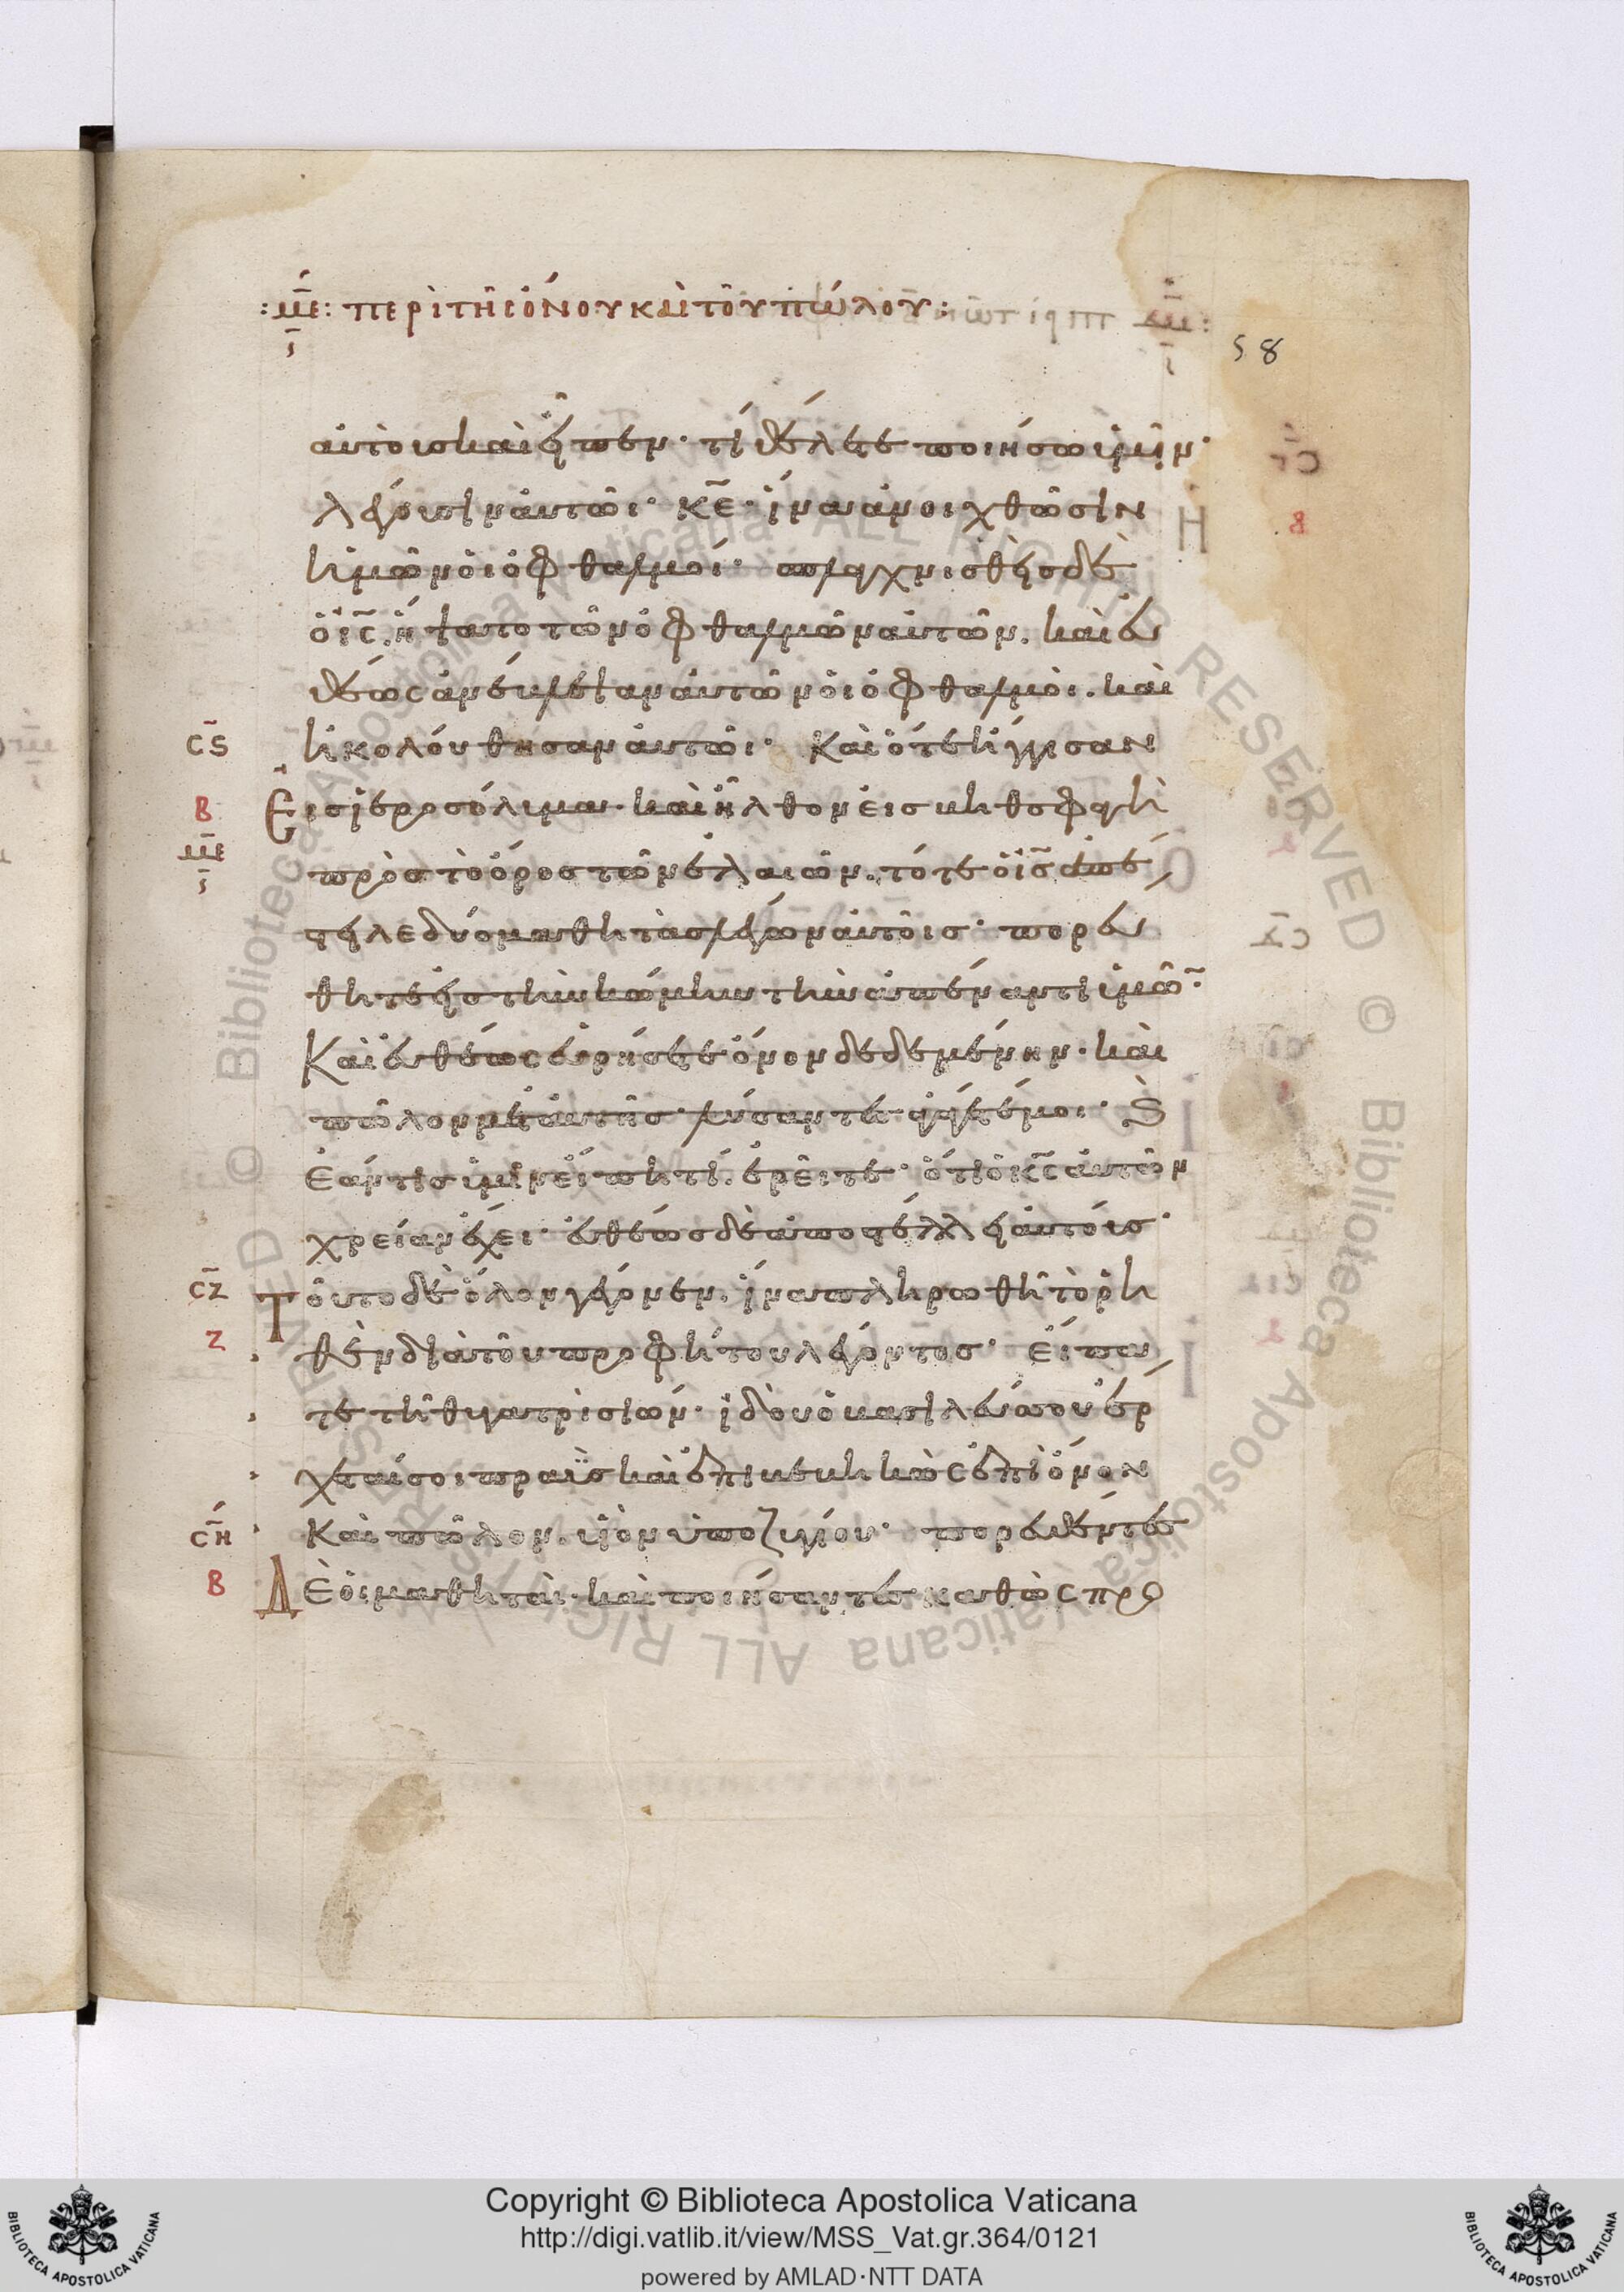 :με: περὶ τῆς ὄνου καὶ τοῦ πώλου:
58
αὐτοὺσ καὶ εἶπεν· τί θέλετε ποιήσω ὑμῖν·
λέγουσιν αὐτῶι· κ̅ε̅· ἵνα ἀνοιχθῶσιν
ἡμῶν ὁι ὀφθαλμοί· σπλαγχνισθεὶς δὲ
ὁ ι̅ς̅. ἥψατο τῶν ὀφθαλμῶν αὐτῶν. καὶ εὐ
θέως ἀνέβλεψαν αὐτῶν ὁι ὀφθαλμὸι. καὶ
c̅ς ἠκολούθησαν αὐτῶι· Καὶ ὅτε ἤγγισαν
β Εἰσ ἱεροσόλυμα. καὶ ἦλθον εἰσ βηθσφαγὴ
με πρὸσ τὸ ὄροσ τῶν ἐλαιῶν. τότε ὁ ι̅ς̅ ἀπέ
στειλε δύο μαθητὰσ λέγων αὐτοῖσ· πορεύ
θητε εἰσ τὴν κώμην τὴν ἀπέναντι ὑμῶ̅·
Καὶ εὐθέως εὑρήσετε ὄνον δεδεμένην. καὶ
πῶλον μετ' αὐτῆσ· λύσαντες ἀγάγετέ μοι· Ϗ
ἐάν τισ ὑμῖν εἴπη τί. ἐρεῖτε· ὅτι ὁ κ̅ς̅ αὐτῶν
χρείαν ἔχει· εὐθέωσ δὲ ἀποστέλλει αὐτούσ·
c̅ζ Τοῦτο δὲ ὅλον γέγονεν. ἵνα πληρωθῆ τὸ ῥη
ζ θὲν διὰ τοῦ προφήτου λέγοντοσ· Εἴπα
τε τῆ θυγατρὶ σιών· ἰδοὺ ὁ βασιλεύσ σου ἔρ
χεταί σοι πραῢσ καὶ ἐπιβεβηκὼς ἐπὶ ὄνον
c̅η καὶ πῶλον. υἱὸν ὑποζυγίου· πορευθέντες
β Δὲ ὁι μαθηταὶ. καὶ ποιήσαντες καθὼς προ
Copyright © Biblioteca Apostolica Vaticana
http://digi.vatlib.it/view/MSS_Vat.gr.364/0121
powered by AMLAD·NTT DATA
BIBLIOTECA APOSTOLICA VATICANA
BIBLIOTECA APOSTOLICA VATICANA
© Biblioteca Apostolica Vaticana ALL RIGHTS RESERVED © Biblioteca Apostolica Vaticana ALL RIGHTS RESERVED